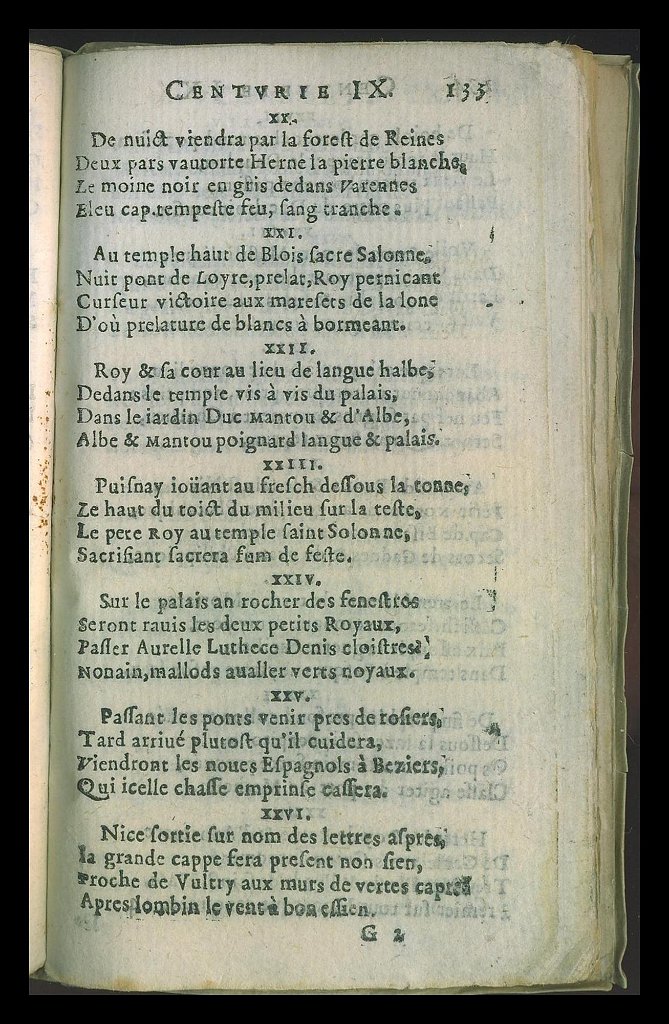 CENTVRIE IX. 135
XX.
De nuict viendra par la forest de Reines
Deux pars vautorte Herne la pierre blanche,
Le moine noir en gris dedans Varennes
Eleu cap.tempeste feu, sang tranche.
XXI.
Au temple haut de Blois sacre Salonne,
Nuit pont de Loyre,prelat,Roy pernicant
Curseur victoire aux maresets de la lone
D'où prelature de blancs à bormeant.
XXII.
Roy & sa cour au lieu de langue halbe,
Dedans le temple vis à vis du palais,
Dans le iardin Duc Mantou & d'Albe,
Albe & Mantou poignard langue & palais.
XXIII.
Puisnay ioüant au fresch dessous la tonne,
Le haut du toict du milieu sur la teste,
Le pere Roy au temple saint Solonne,
Sacrifiant sacrera fum de feste.
XXIV.
Sur le palais an rocher des fenestres
Seront rauis les deux petits Royaux,
Passer Aurelle Luthece Denis cloistres,
Nonain,mallods aualler verts noyaux.
XXV.
Passant les ponts venir pres de rosiers,
Tard arriué plutost qu'il cuidera,
Viendront les noues Espagnols à Beziers,
Qui icelle chasse emprinse cassera.
XXVI.
Nice sortie sur nom des lettres aspres,
la grande cappe fera present non sien,
Proche de Vultry aux murs de vertes capres
Apres lombin le vent à bon essien.
G 2